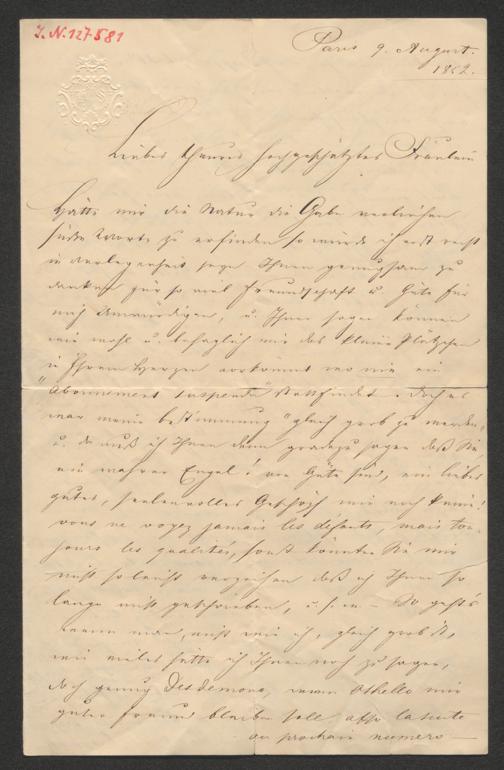 I.N. 127.581
Paris 9. August.
1852.
Liebes theures hochgeschätztes Fräulein
Hätte mir die Natur die Gabe verliehen
süße Worte zu erfinden so würde ich erst recht
in Verlegenheit seyn Ihnen genugsam zu
danken für so viel Freundschaft u. Güte für
mich Unwürdigen, u. Ihnen sagen können
wie wohl u. behaglich mir das kleine Plätzchen
in Ihrem Herzen vorkömmt wo nie ein
"Abonnement suspendu" stattfindet. Doch es
war meine Bestimmung "gleich grob zu werden"
u. da muß ich Ihnen denn geradezu sagen daß Sie
ein wahrer Engel! von Güte sind, ein liebes
gutes, seelenvolles Geschöpf wie noch keine!
vous ne voyez jamais les défauts, mais tou-
jours les qualités, sonst könnten Sie mir
nicht so leicht verzeihen daß ich Ihnen so
lange nicht geschrieben, u.s.w. — So geht's
wenn man, nicht wie ich, gleich grob ist,
wie vieles hätte ich Ihnen noch zu sagen,
doch genug Desdemona, wenn Othello mir
guter Freund bleiben soll, also la suite
au prochain numero —